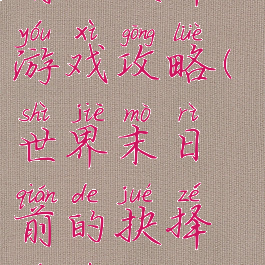 yóu xì gōng lüè
游戏攻略(
shì jiè mò rì
世界末日
qián de jué zé
前的抉择